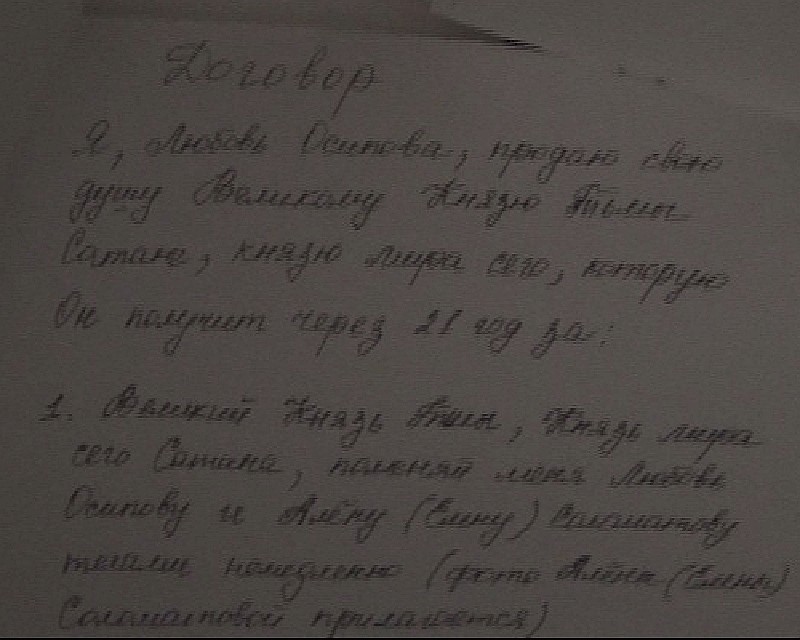 Договор
Я, Любовь Осипова, продаю свою
душу Великому Князю Тьмы
Сатане, князю мира сего, которую
Он получит через 21 год за:
1. Великий Князь Тьмы, Князь мира
сего Сатана, поменяй меня Любовь
Осипову и Алёну (Елену) Соломатову
телами немедленно (фото Алёны (Елены)
Соломатовой прилагается)